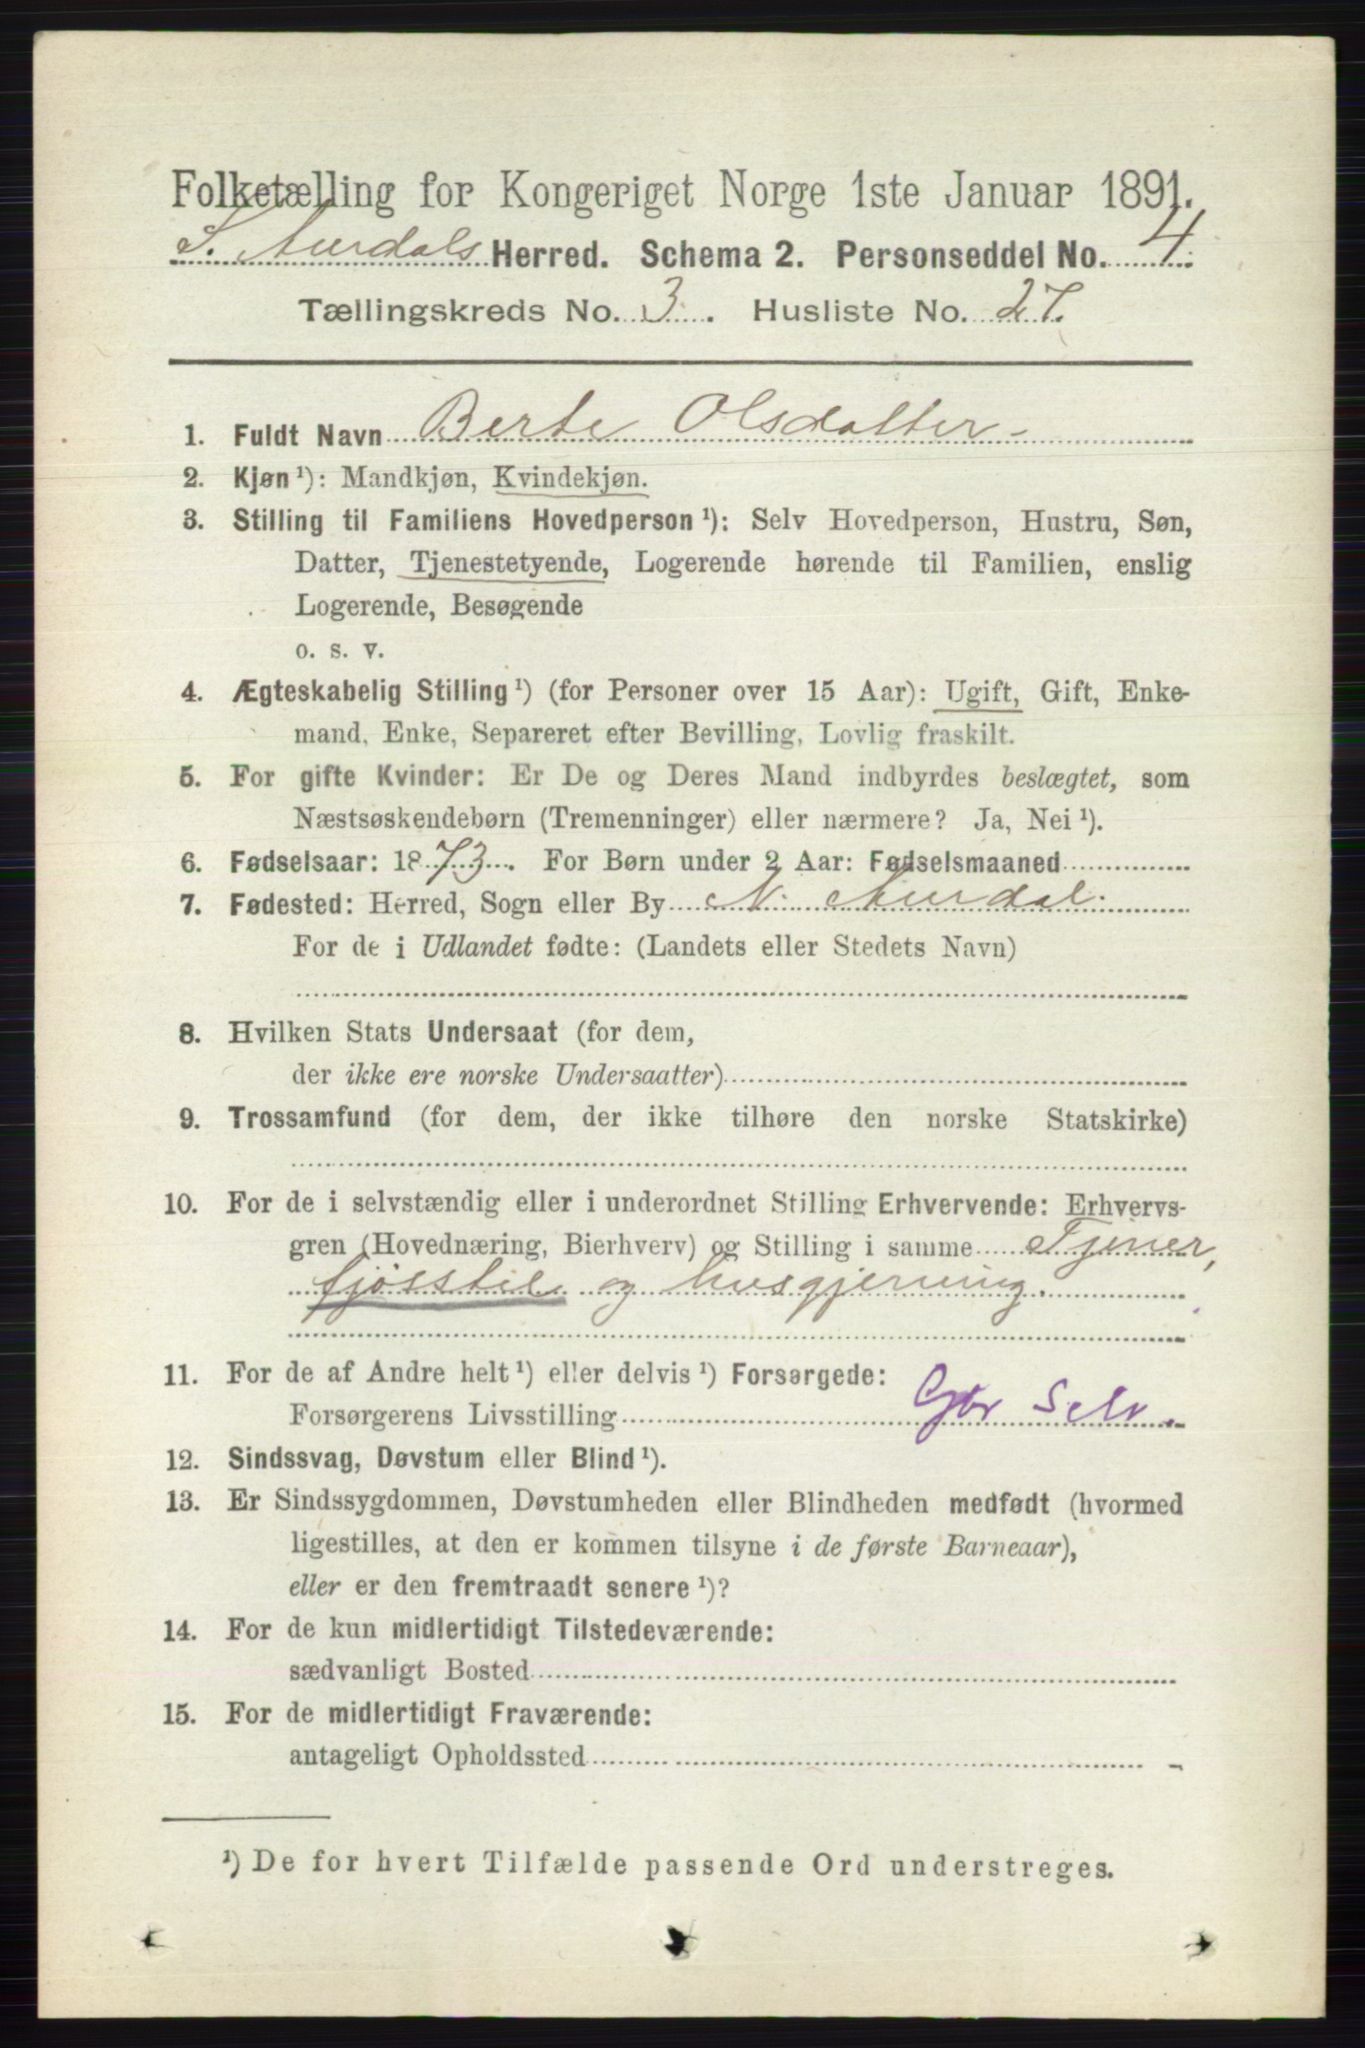 Folketælling for Kongeriget Norge 1ste Januar 1891.
S. Aurdals Herred. Schema 2. Personseddel No. 4.
Tællingskreds No. 3. Husliste No. 27.
1. Fuldt Navn Berte Olsdatter
2. Kjøn ¹): Mandkjøn, Kvindekjøn.
3. Stilling til Familiens Hovedperson ¹): Selv Hovedperson, Hustru, Søn,
Datter, Tjenestetyende, Logerende hørende til Familien, enslig
Logerende, Besøgende
o. s. v.
4. Ægteskabelig Stilling ¹) (for Personer over 15 Aar): Ugift, Gift, Enke-
mand, Enke, Separeret efter Bevilling, Lovlig fraskilt.
5. For gifte Kvinder: Er De og Deres Mand indbyrdes beslægtet, som
Næstsøskendebørn (Tremenninger) eller nærmere? Ja, Nei ¹).
6. Fødselsaar: 1873. For Børn under 2 Aar: Fødselsmaaned
7. Fødested: Herred, Sogn eller By N. Aurdal.
For de i Udlandet fødte: (Landets eller Stedets Navn)
8. Hvilken Stats Undersaat (for dem,
der ikke ere norske Undersaatter)
9. Trossamfund (for dem, der ikke tilhøre den norske Statskirke)
10. For de i selvstændig eller i underordnet Stilling Erhvervende: Erhvervs-
gren (Hovednæring, Bierhverv) og Stilling i samme Tjener,
fjøsstel og husgjerning.
11. For de af Andre helt ¹) eller delvis ¹) Forsørgede:
Forsørgerens Livsstilling Gbr Selv.
12. Sindssvag, Døvstum eller Blind ¹).
13. Er Sindssygdommen, Døvstumheden eller Blindheden medfødt (hvormed
ligestilles, at den er kommen tilsyne i de første Barneaar),
eller er den fremtraadt senere ¹)?
14. For de kun midlertidigt Tilstedeværende:
sædvanligt Bosted
15. For de midlertidigt Fraværende:
antageligt Opholdssted
¹) De for hvert Tilfælde passende Ord understreges.